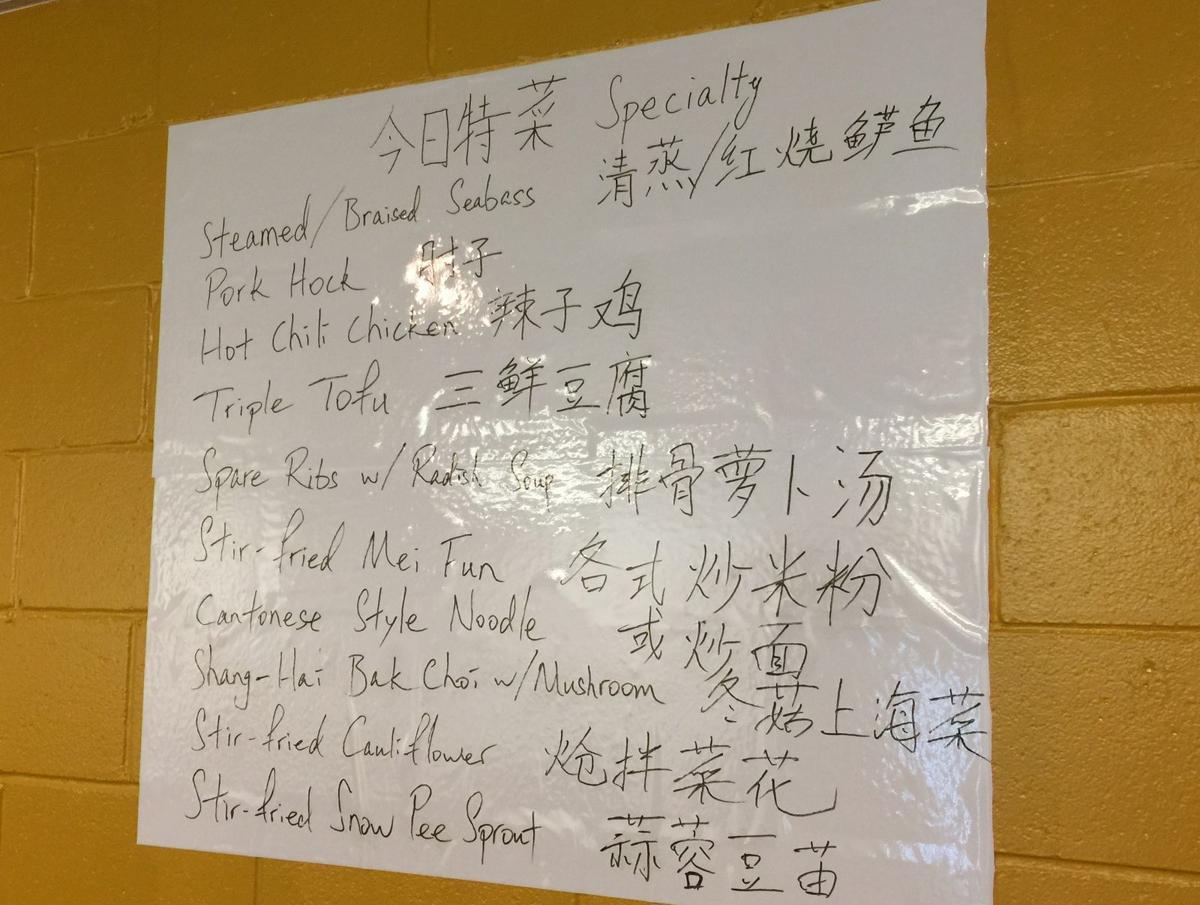 今日特菜 Specialty
Steamed/Braised Seabass 清蒸/红烧鲈鱼
Pork Hock 肘子
Hot Chili Chicken 辣子鸡
Triple Tofu 三鲜豆腐
Spare Ribs w/ Radish Soup 排骨萝卜汤
Stir-fried Mei Fun 各式炒米粉
Cantonese Style Noodle 或炒面
Shang-Hai Bak Choi w/Mushroom 冬菇上海菜
Stir-fried Cauliflower 炝拌菜花
Stir-fried Snow Pee Sprout 蒜蓉豆苗